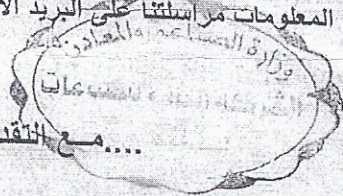 المعلومات مراسلتنا على البريد الا
وزارة الصناعة والمعادن
الشركة العامة
....مع التقد